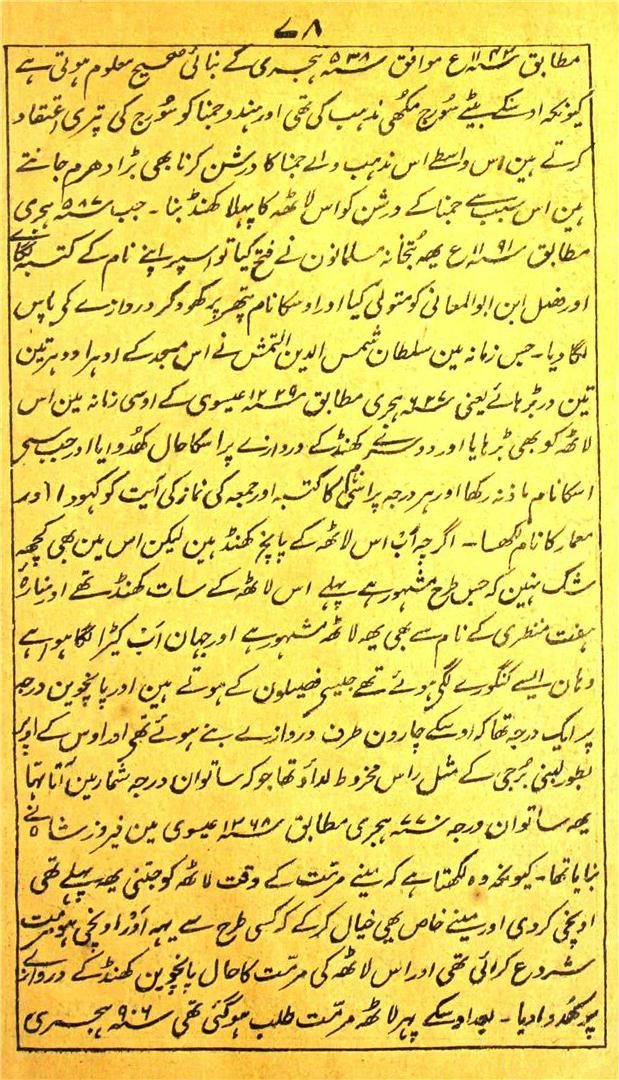 ۷۸
مطابق ۱۱۴۳ سنہ ع موافق ۵۳۸ سنہ ہجری کے بنائی صحیح معلوم ہوتی ہے
کیونکہ اوسکے بیٹے سورج مکھی مذہب کی تھی اور ہندو جمنا کو سورج کی پتری اعتقاد
کرتے ہین اس واسطے اس مذہب والے جمنا کا درشن کرنا بھی بڑا دھرم جانتے
ہین اس سبب سے جمنا کے درشن کو اس لاٹھہ کا پہلا کھنڈ بنا ۔ جب ۵۸۷ سنہ ہجری
مطابق ۱۱۹۱ سنہ ع یہہ بتخانہ مسلمانون نے فتح کیا تو اسپر اپنے نام کے کتبے لگائے
اور فضل ابن ابوالمعالی کو متولی کیا اور اوسکا نام پتھر پر کھود کر دروازے کی پاس
لگا دیا ۔ جس زمانہ مین سلطان شمس الدین التمش نے اس مسجد کے اودہر اودہر تین
تین در بڑہائے یعنی ۶۲۷ سنہ ہجری مطابق ۱۲۲۹ سنہ عیسوی کے اوسی زمانہ مین اس
لاٹھہ کو بھی بڑہایا اور دوسرے کھنڈ کے دروازے پر اسکا حال کھدوایا اور
اسکا نام ماذنہ رکھا اور ہر درجہ پر اپنے نام کا کتبہ اور جمعہ کی نماز کی آیت کو کہودا اور
معمار کا نام لکھا ۔ اگرچہ اب اس لاٹھہ کے پانچ کھنڈ ہین لیکن اس مین بھی کچھہ
شک نہین کہ جس طرح مشہور ہے پہلے اس لاٹھہ کے سات کھنڈ تھے اور منارہ
ہفت منظری کے نام سے بھی یہہ لاٹھہ مشہور ہے اور جہان اب کٹہڑا لگا ہوا ہے
وہان ایسے کنگورے لگی ہوئے تھے جیسی فصیلون کے ہوتے ہین اور پانچوین درجہ
پر ایک درجہ تھا کہ اوسکے چارون طرف دروازے بنے ہوئے تھی اور اوس کے اوپر
بطور لمبی برجی کے مثل راس مخروط لداؤ تھا جو کہ ساتوان درجہ شمار مین آتا تہا
یہہ ساتوان درجہ ۷۷۰ سنہ ہجری مطابق ۱۳۶۸ سنہ عیسوی مین فیروز شاہ نے
بنایا تھا ۔ کیونکہ وہ لکھتا ہے کہ مینے مرمت کے وقت لاٹھہ کو جتنی یہہ پہلے تھی
اونچی کر دی اور مینے خاص یہی خیال کر کے کہ کسی طرح سے یہہ اور اونچی ہو مرمت
شروع کرائی تھی اور اس لاٹھہ کی مرمت کا حال پانچوین کھنڈ کے دروازے
پر کھدوا دیا ۔ بعد اوسکے پہر لاٹھہ مرمت طلب ہو گئی تھی ۹۰۶ سنہ ہجری